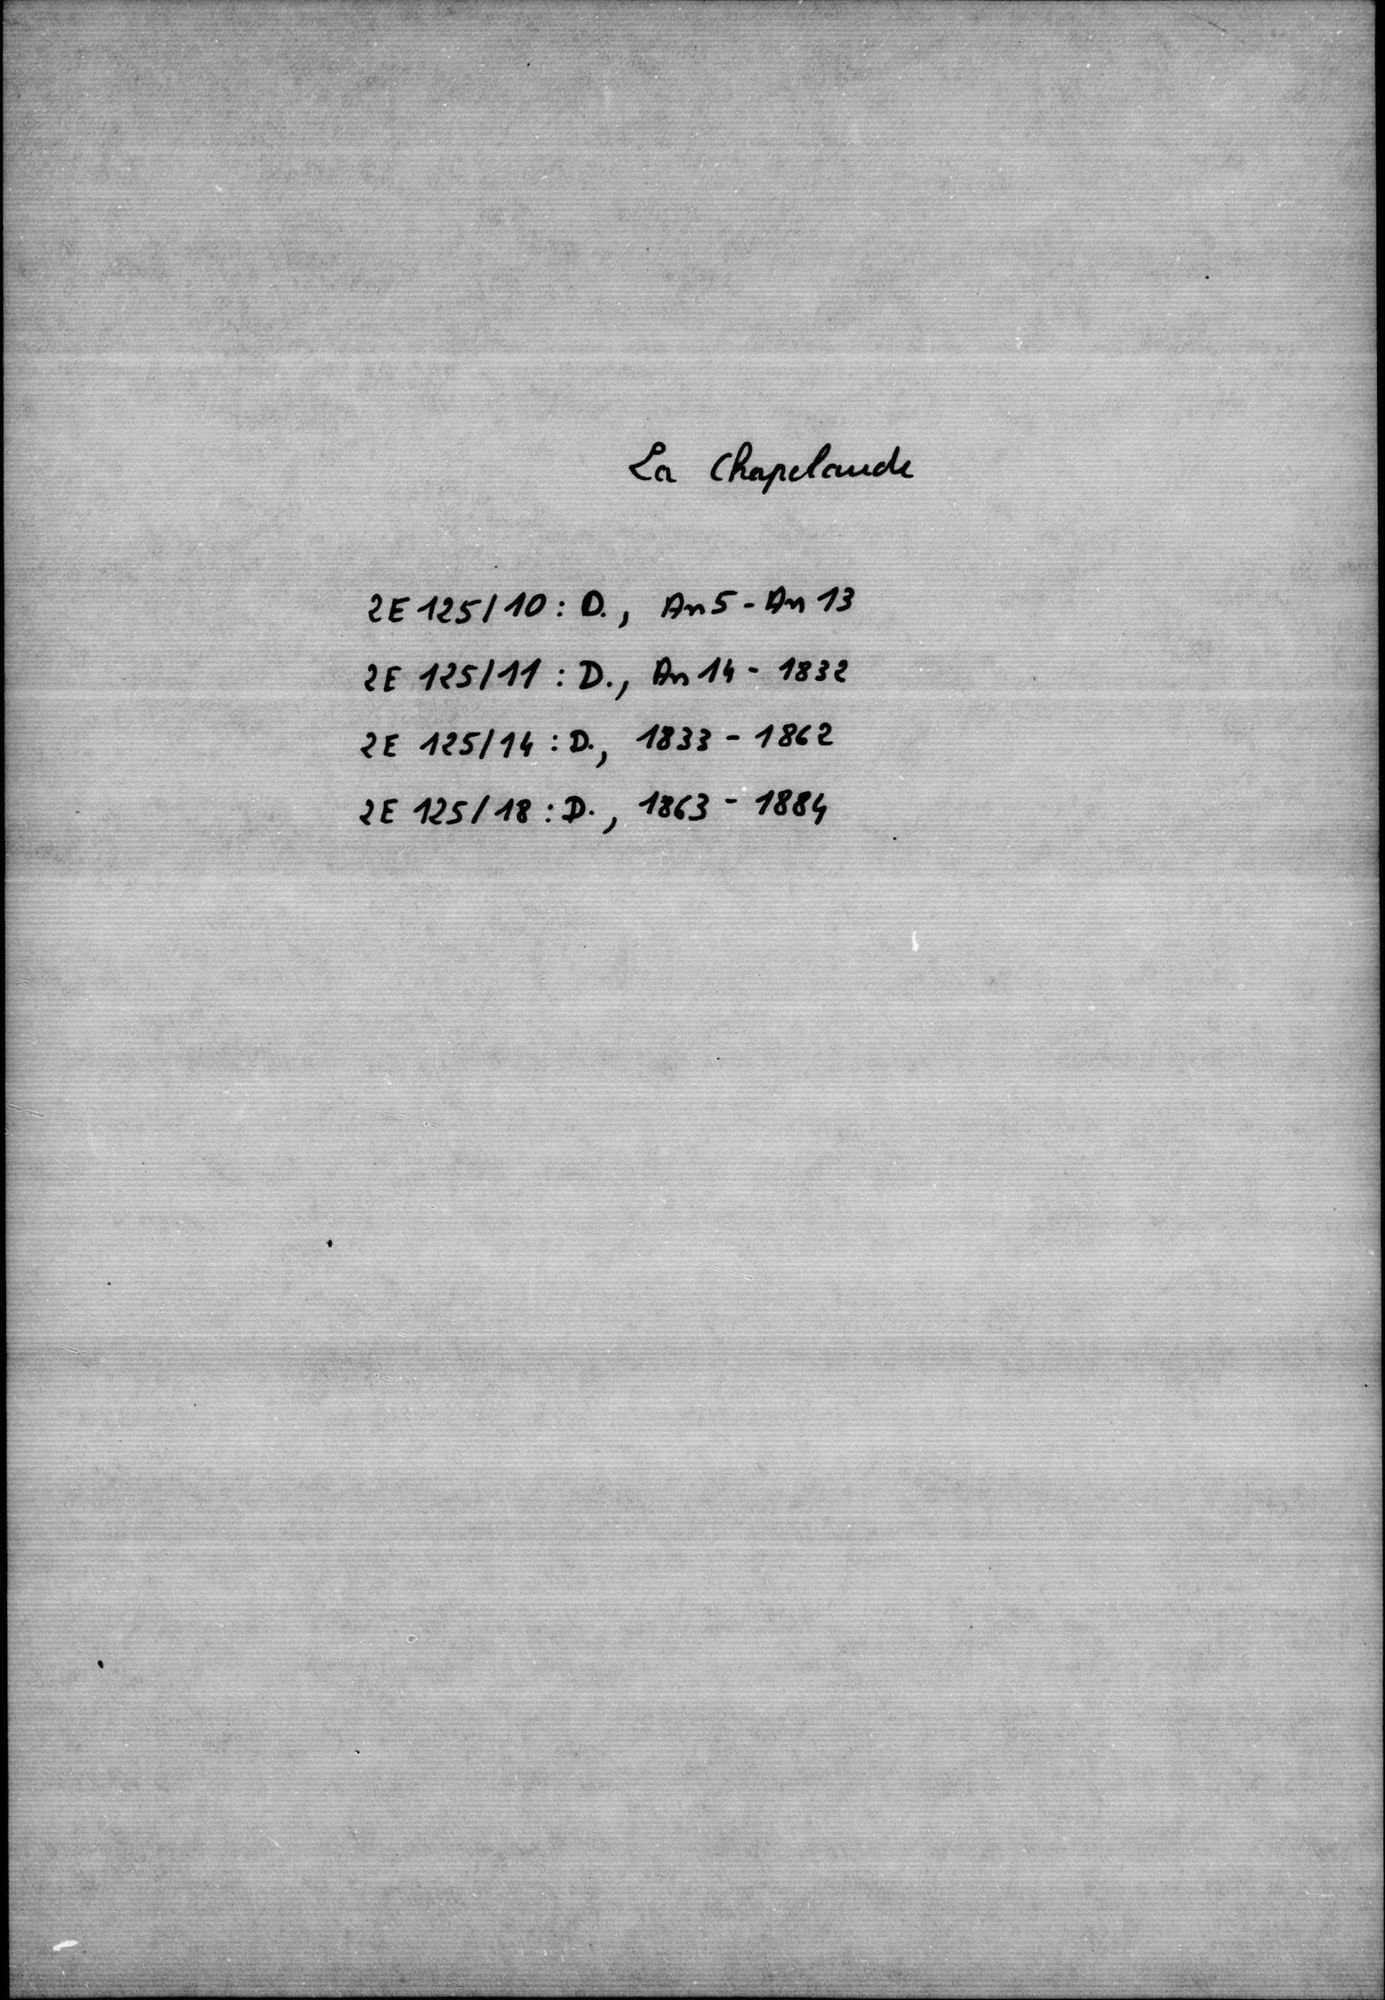 La Chapelaude
2E 125/10 : D., An 5 - An 13
2E 125/11 : D., An 14 - 1832
2E 125/14 : D., 1833 - 1862
2E 125/18 : D., 1863 - 1884